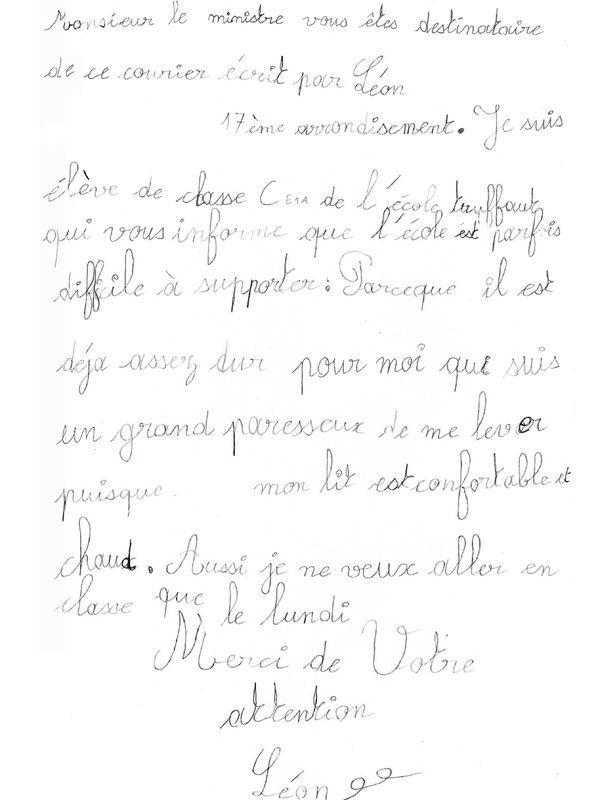 Monsieur le ministre vous êtes destinataire
de ce courrier écrit par Léon
17ème arrondisement. Je suis
élève de classe CE1A de l'école truffaut
qui vous informe que l'école est parfois
difficile à supporter : Parceque il est
déja assez dur pour moi qui suis
un grand paresseux de me lever
puisque mon lit est confortable et
chaud. Aussi je ne veux aller en
classe que le lundi
Merci de Votre
attention
Léon